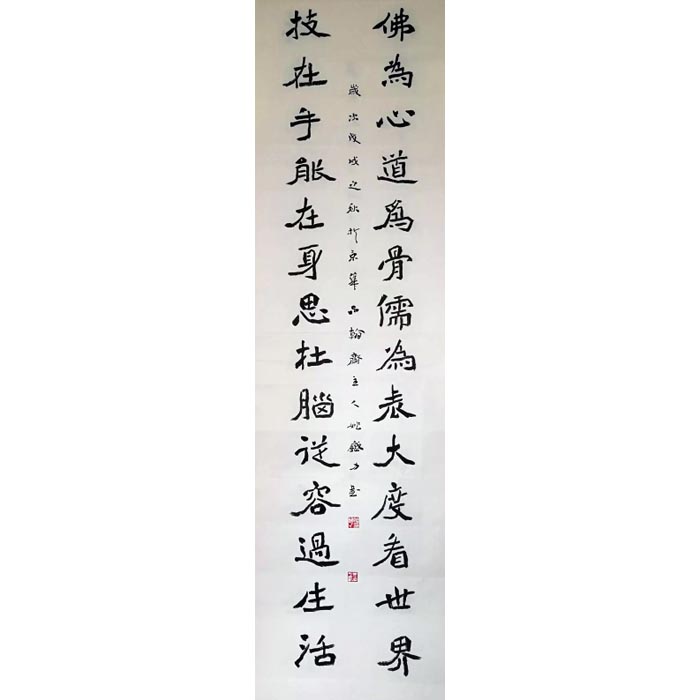 佛為心道爲骨儒為表大度看世界
歲次戌之秋於京華品翰齋主人鐵力書
技在手能在身思在腦從容過生活